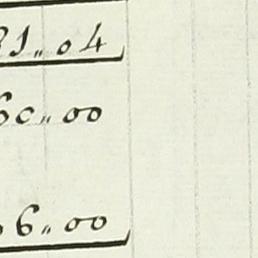 31„04
60„00
6„00